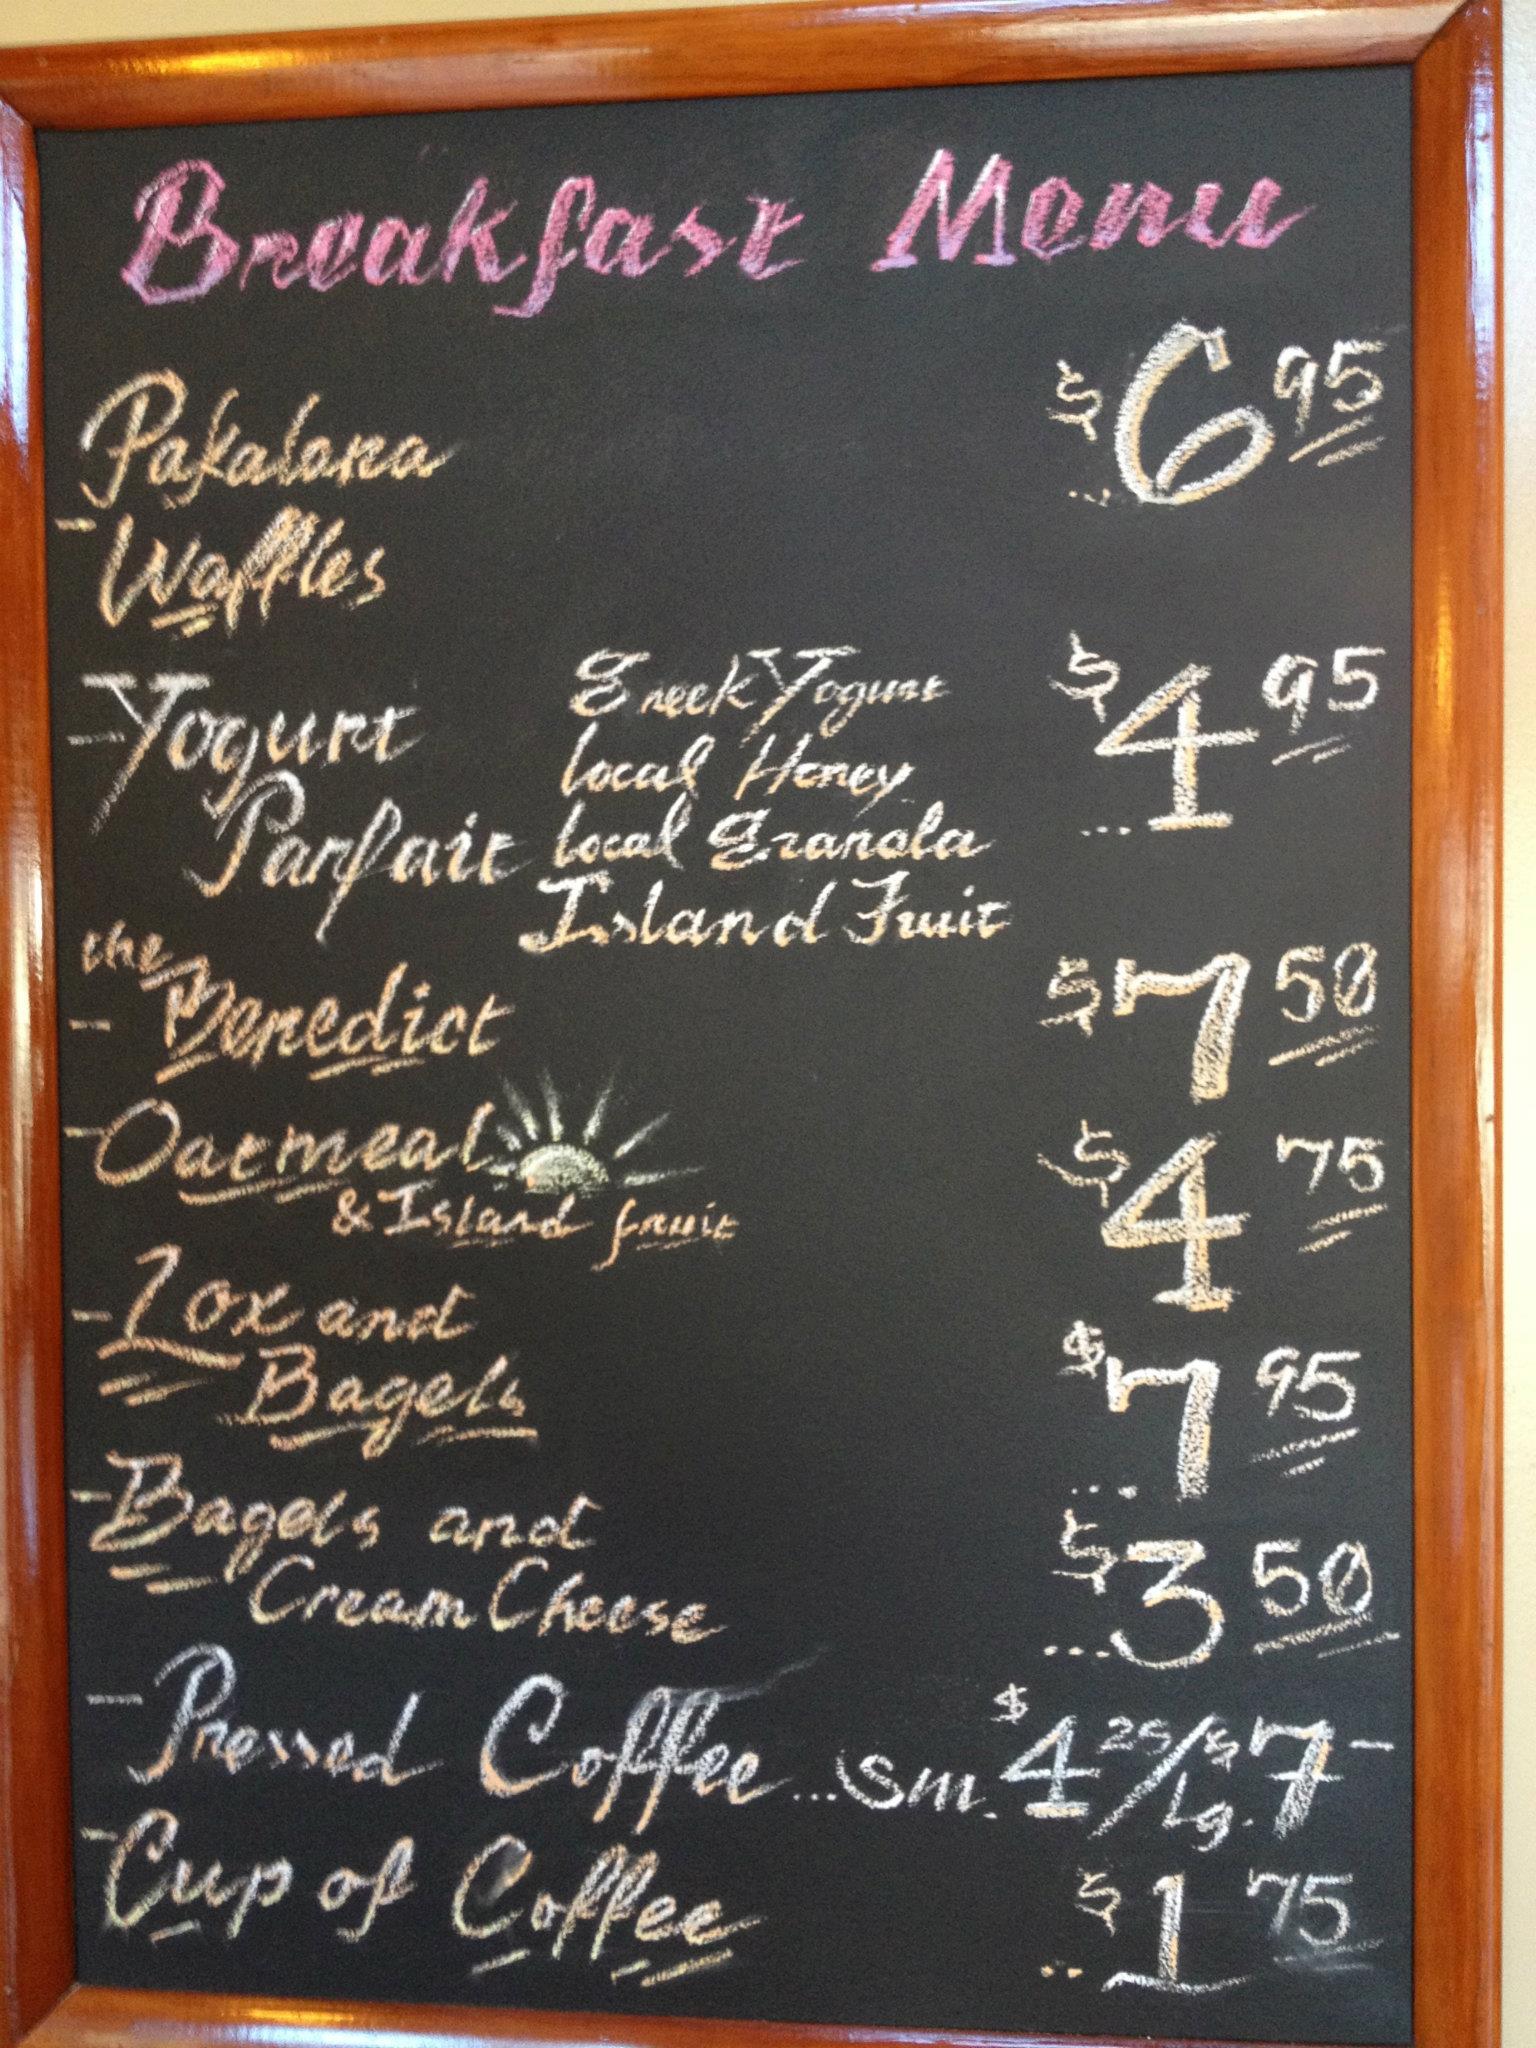 Breakfast Menu
Pakalana $6 95
- Waffles ...
- Yogurt Parfait ... $4 95
Greek Yogurt
local Honey
local Granola
Island Fruit
- the Benedict $7 50
- Oatmeal $4 75
& Island fruit
- Lox and
Bagels ... $7 95
- Bagels and
Cream Cheese ... $3 50
- Pressed Coffee ... Sm. $4 25 / Lg. $7 -
- Cup of Coffee .. $1 75